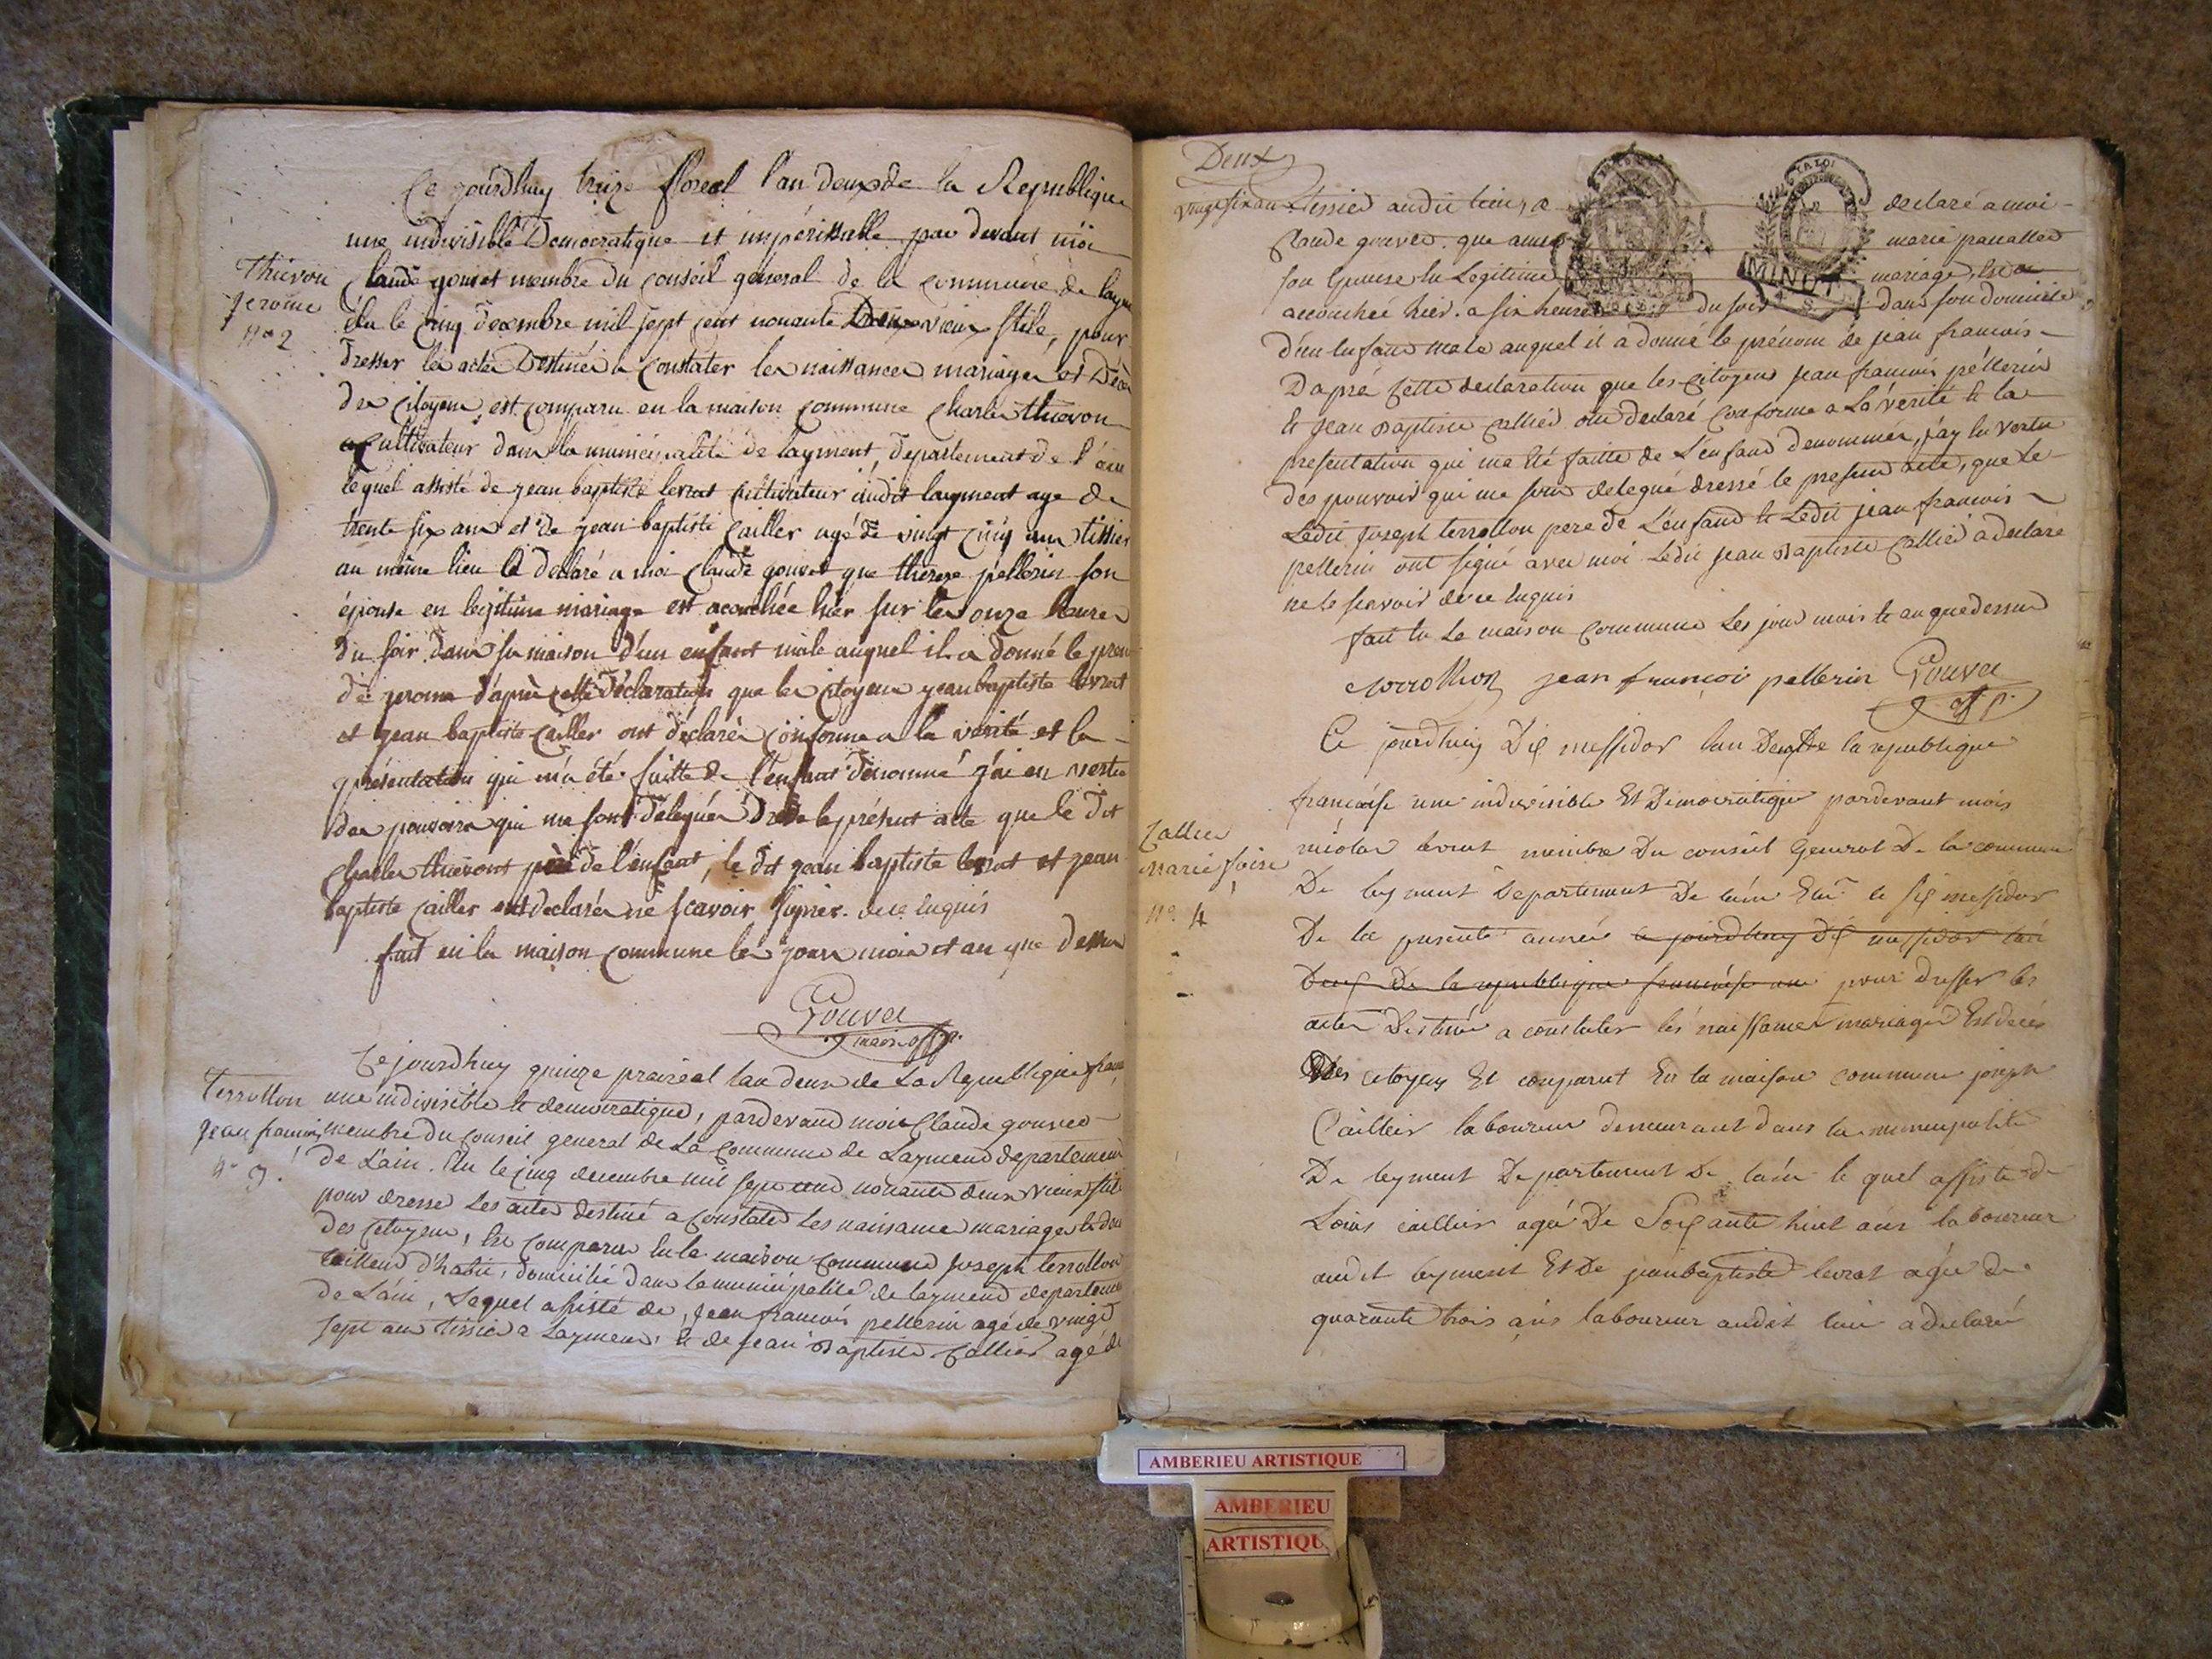 Ce jourdhuy treize floreal l'an deux de la Republique
une indivisible Democratique et impérissable par devant moi
Thievon
Jerome
no 2
Claude gouvet membre du Conseil general de la commune de laym
élu le Cinq decembre mil sept cent nonante Deux vieux stile, pour
dresser les actes Destinés a Constater les naissances mariages et Décès
des Citoyens, est comparu en la maison commune Charles thievon
Cultivateur dans la municipalité de layment, departement de l'ain
lequel assisté de jean baptiste levrat Cultivateur audit layment age de
trente six ans et de jean baptiste Cailler agé de vingt Cinq ans tissier
au même lieu a declaré a moi Claude gouvet que therese pellerin son
épouse en legitime mariage est acouchée hier sur les onze heures
du soir dans sa maison d'un enfant male auquel il a donné le pren
de jerome d'après cette déclaration que les Citoyens jean baptiste levrat
et jean baptiste Cailler ont déclarés Conforme a la vérité et la
présentation qui m'a été faitte de l'enfant dénommé j'ai en vertu
des pouvoirs qui me sont délégués le présent acte que le dit
Charles thievont père de l'enfant, le dit jean baptiste levrat et jean
baptiste Cailler ont declarés ne scavoir signer. de ce luquis
fait en la maison commune les jours mois et an que dessus
Gouvet
off p.
Ce jourdhuy quinze prairéal lan deux de La Republique fran
Terrollon
Jean francois
n° 3.
une indivisible et democratique, pardevand moi Claude gouvet
membre du Conseil general de La Commune de Laymend departement
de L'ain. Elu le cinq decembre mil sept cend nonante deux vieux stile
pour dresse Les actes destiné a Constater Les naissance mariage et des
des Citoyens, est Comparu en la maison Commune Joseph terrollon
tailleur d'habit, domicilié dans la municipalité de laymend departemen
de L'ain, Lequel assisté de, Jean francois pellerin agé de vingt
sept ans tissier a Laymens, et de Jean Baptiste Callier agé de
Deux
vingt six ans tissier audit lieu, a declaré a moi
Claude gouvet. que marie
son Epouse en Legitime mariage, est
accouchée hier. a six heures du soir dans son domicile
d'un enfand male auquel il a donné le prénom de jean francois
D'après Cette declaration que les Citoyens jean francois pellerin
et Jean Baptiste Callier ont declaré Conforme a La vérité et la
presentation qui ma été faitte de L'enfand denommée, j'ay en vertu
des pouvoir qui me sont delegué dressé le present acte, que Le
Ledit Joseph terrollon pere de L'enfand et Ledit jean francois
pellerin ont signé avec moi Ledit Jean Baptiste Callier a declaré
ne le scavoir de ce luquis
fait en La maison Commune Les jour mois et an que dessus
jean françois pellerin Gouvet
off p.
Ce jourdhuy Dix messidor lan Deux de la republique
francaise une indivisible Et Democratique pardevant mois
Callier
marie
no. 4
nicolas levrat membre Du conseil General De la commune
De leyment Departement De lain Elu le six messidor
De la presente année ce jourdhuy Dix messidor lan
Deux De la republique francaise une pour dresser les
actes Destinée a constater les naissances mariages Et decés
Des citoyens Et comparut En la maison commune joseph
Caillier laboureur demeurant dans la municipalité
De leyment Departement De lain le quel assiste de
Louis caillier ageé De Soixante huit ans laboureur
audit leyment Et De jeanbaptiste levrat agée de
quarante trois ans laboureur audit lieu a declaré
LA LOI
MINUT
AMBERIEU ARTISTIQUE
AMBERIEU
ARTISTIQU